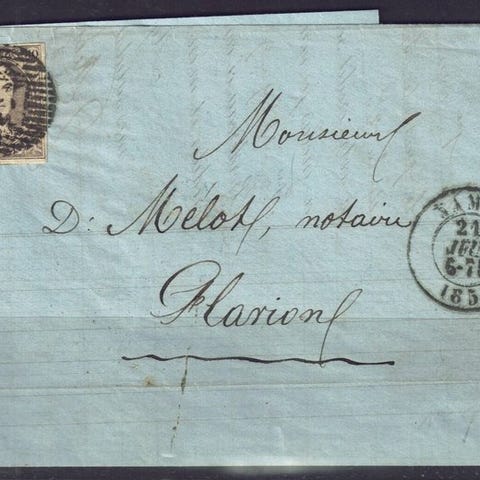 Monsieur
D. Melot, notaire
Flarion
NAM
21
6-7
185